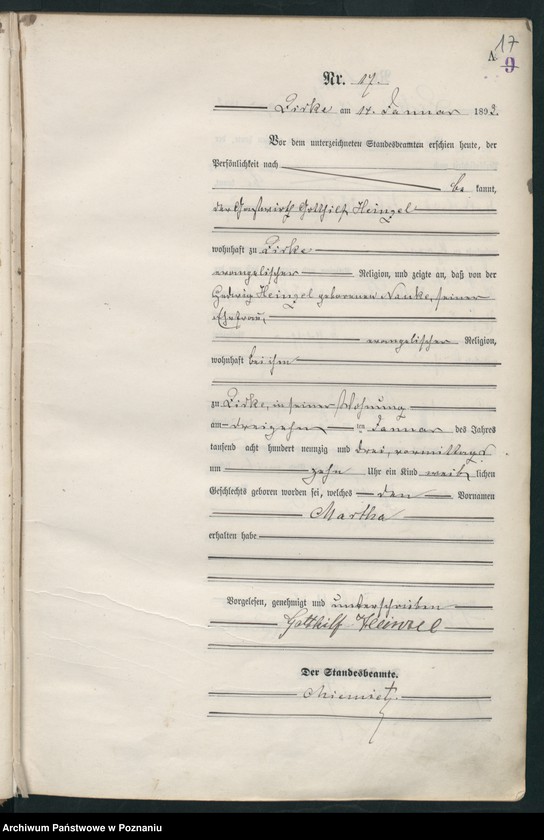 17
A
9
Nr. 17.
Zirke am 14. Januar 1893.
Vor dem unterzeichneten Standesbeamten erschien heute, der
Persönlichkeit nach
be kannt,
der Gastwirth Gotthilf Heinzel
wohnhaft zu Zirke
evangelischer Religion, und zeigte an, daß von der
Hedwig Heinzel geborenen, seiner
Ehefrau,
evangelischer Religion,
wohnhaft bei ihm
zu Zirke, in seiner Wohnung
am dreizehn ten Januar des Jahres
tausend acht hundert neunzig und drei, vormittags
um zehn Uhr ein Kind weib lichen
Geschlechts geboren worden sei, welches den Vornamen
Martha
erhalten habe
Vorgelesen, genehmigt und unterschrieben
Gotthilf Heinzel
Der Standesbeamte.
Archiwum Państwowe w Poznaniu